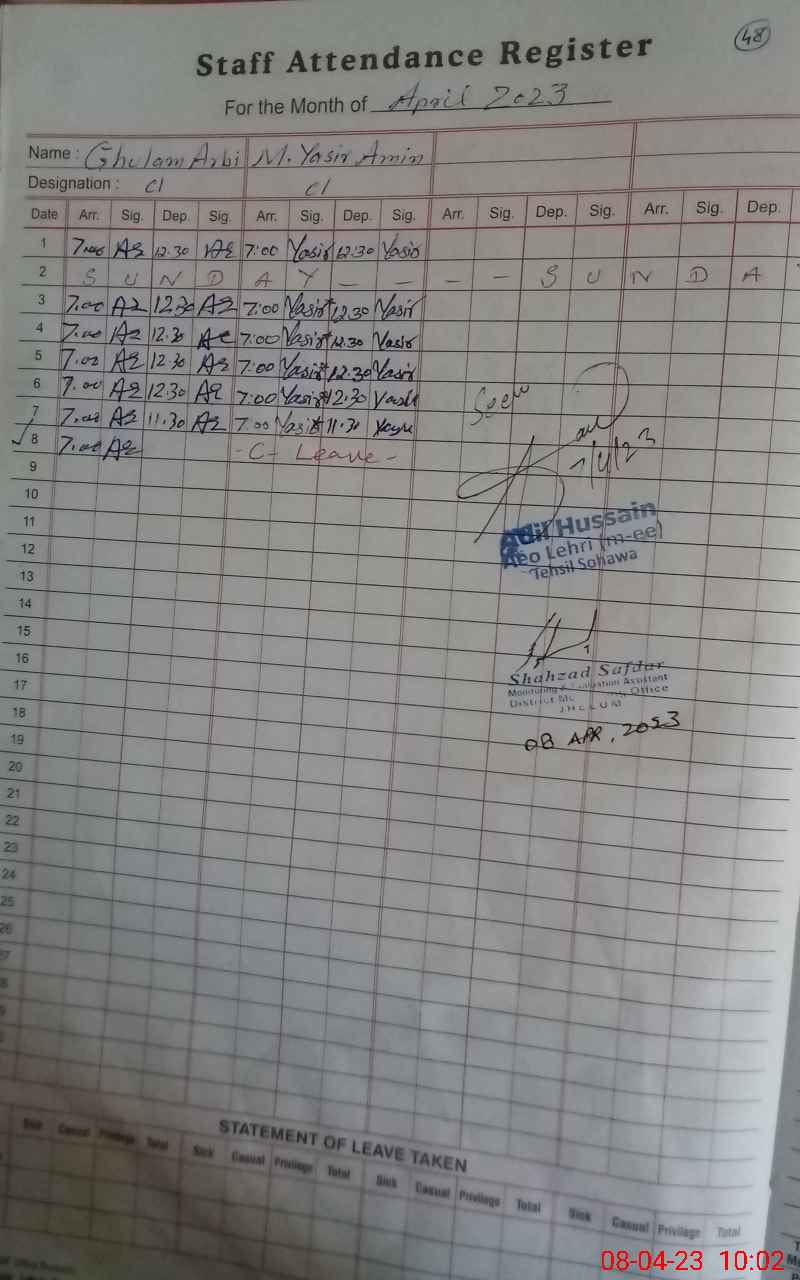 48
Staff Attendance Register
For the Month of April 2023
Name : Ghulam Arbi M. Yasir Amin
Designation : Cl Cl
Date Arr. Sig. Dep. Sig. Arr. Sig. Dep. Sig. Arr. Sig. Dep. Sig. Arr. Sig. Dep.
1 7.00 12.30 7:00 Yasir 12.30 Yasir
2 S U N D A Y — — — — S U N D A
3 7.00 12.30 7:00 Yasir 12.30 Yasir
4 7.00 12.30 7:00 Yasir 12.30 Yasir
5 7.00 12.30 7:00 Yasir 12.30 Yasir
6 7.00 12.30 7:00 Yasir 12.30
7 7.00 11.30 7.00 Yasir 11.30
8 7.00 - C - Leave -
9
10
11
12
13
14
15
16
17
18
19
20
21
22
23
24
25
26
Seen
7/4/23
Adil Hussain
Aeo Lehri (m-ee)
Tehsil Sohawa
Shahzad Safdar
Monitoring & Evaluation Assistant
District Office
JHELUM
08 APR, 2023
STATEMENT OF LEAVE TAKEN
Sick Casual Privilege Total Sick Casual Privilege Total Sick Casual Privilege Total Sick Casual Privilege Total
08-04-23 10:02